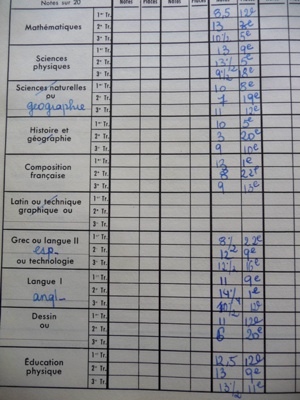 Notes sur 20 Notes Places Notes Places Notes Places
Mathématiques 1er Tr. 8,5 12e
2e Tr. 13 3e
3e Tr. 10½ 5e
Sciences physiques 1er Tr. 13 9e
2e Tr. 13½ 5e
3e Tr. 9½
Sciences naturelles ou géographie 1er Tr. 10 8e
2e Tr. 7 19e
3e Tr. 11 12e
Histoire et géographie 1er Tr. 10 5e
2e Tr. 3 20e
3e Tr. 9 10e
Composition française 1er Tr. 13 1e
2e Tr. 8 22e
3e Tr. 9 13e
Latin ou technique graphique ou 1er Tr.
2e Tr.
3e Tr.
Grec ou langue II esp. ou technologie 1er Tr. 22e
2e Tr. 12 9e
3e Tr. 12½
Langue I angl_ 1er Tr. 11 9e
2e Tr. 1e
3e Tr. 11e
Dessin ou 1er Tr. 11 12e
2e Tr. 6 20e
3e Tr.
Éducation physique 1er Tr. 12,5 12e
2e Tr. 13 9e
3e Tr. 13½ 11e